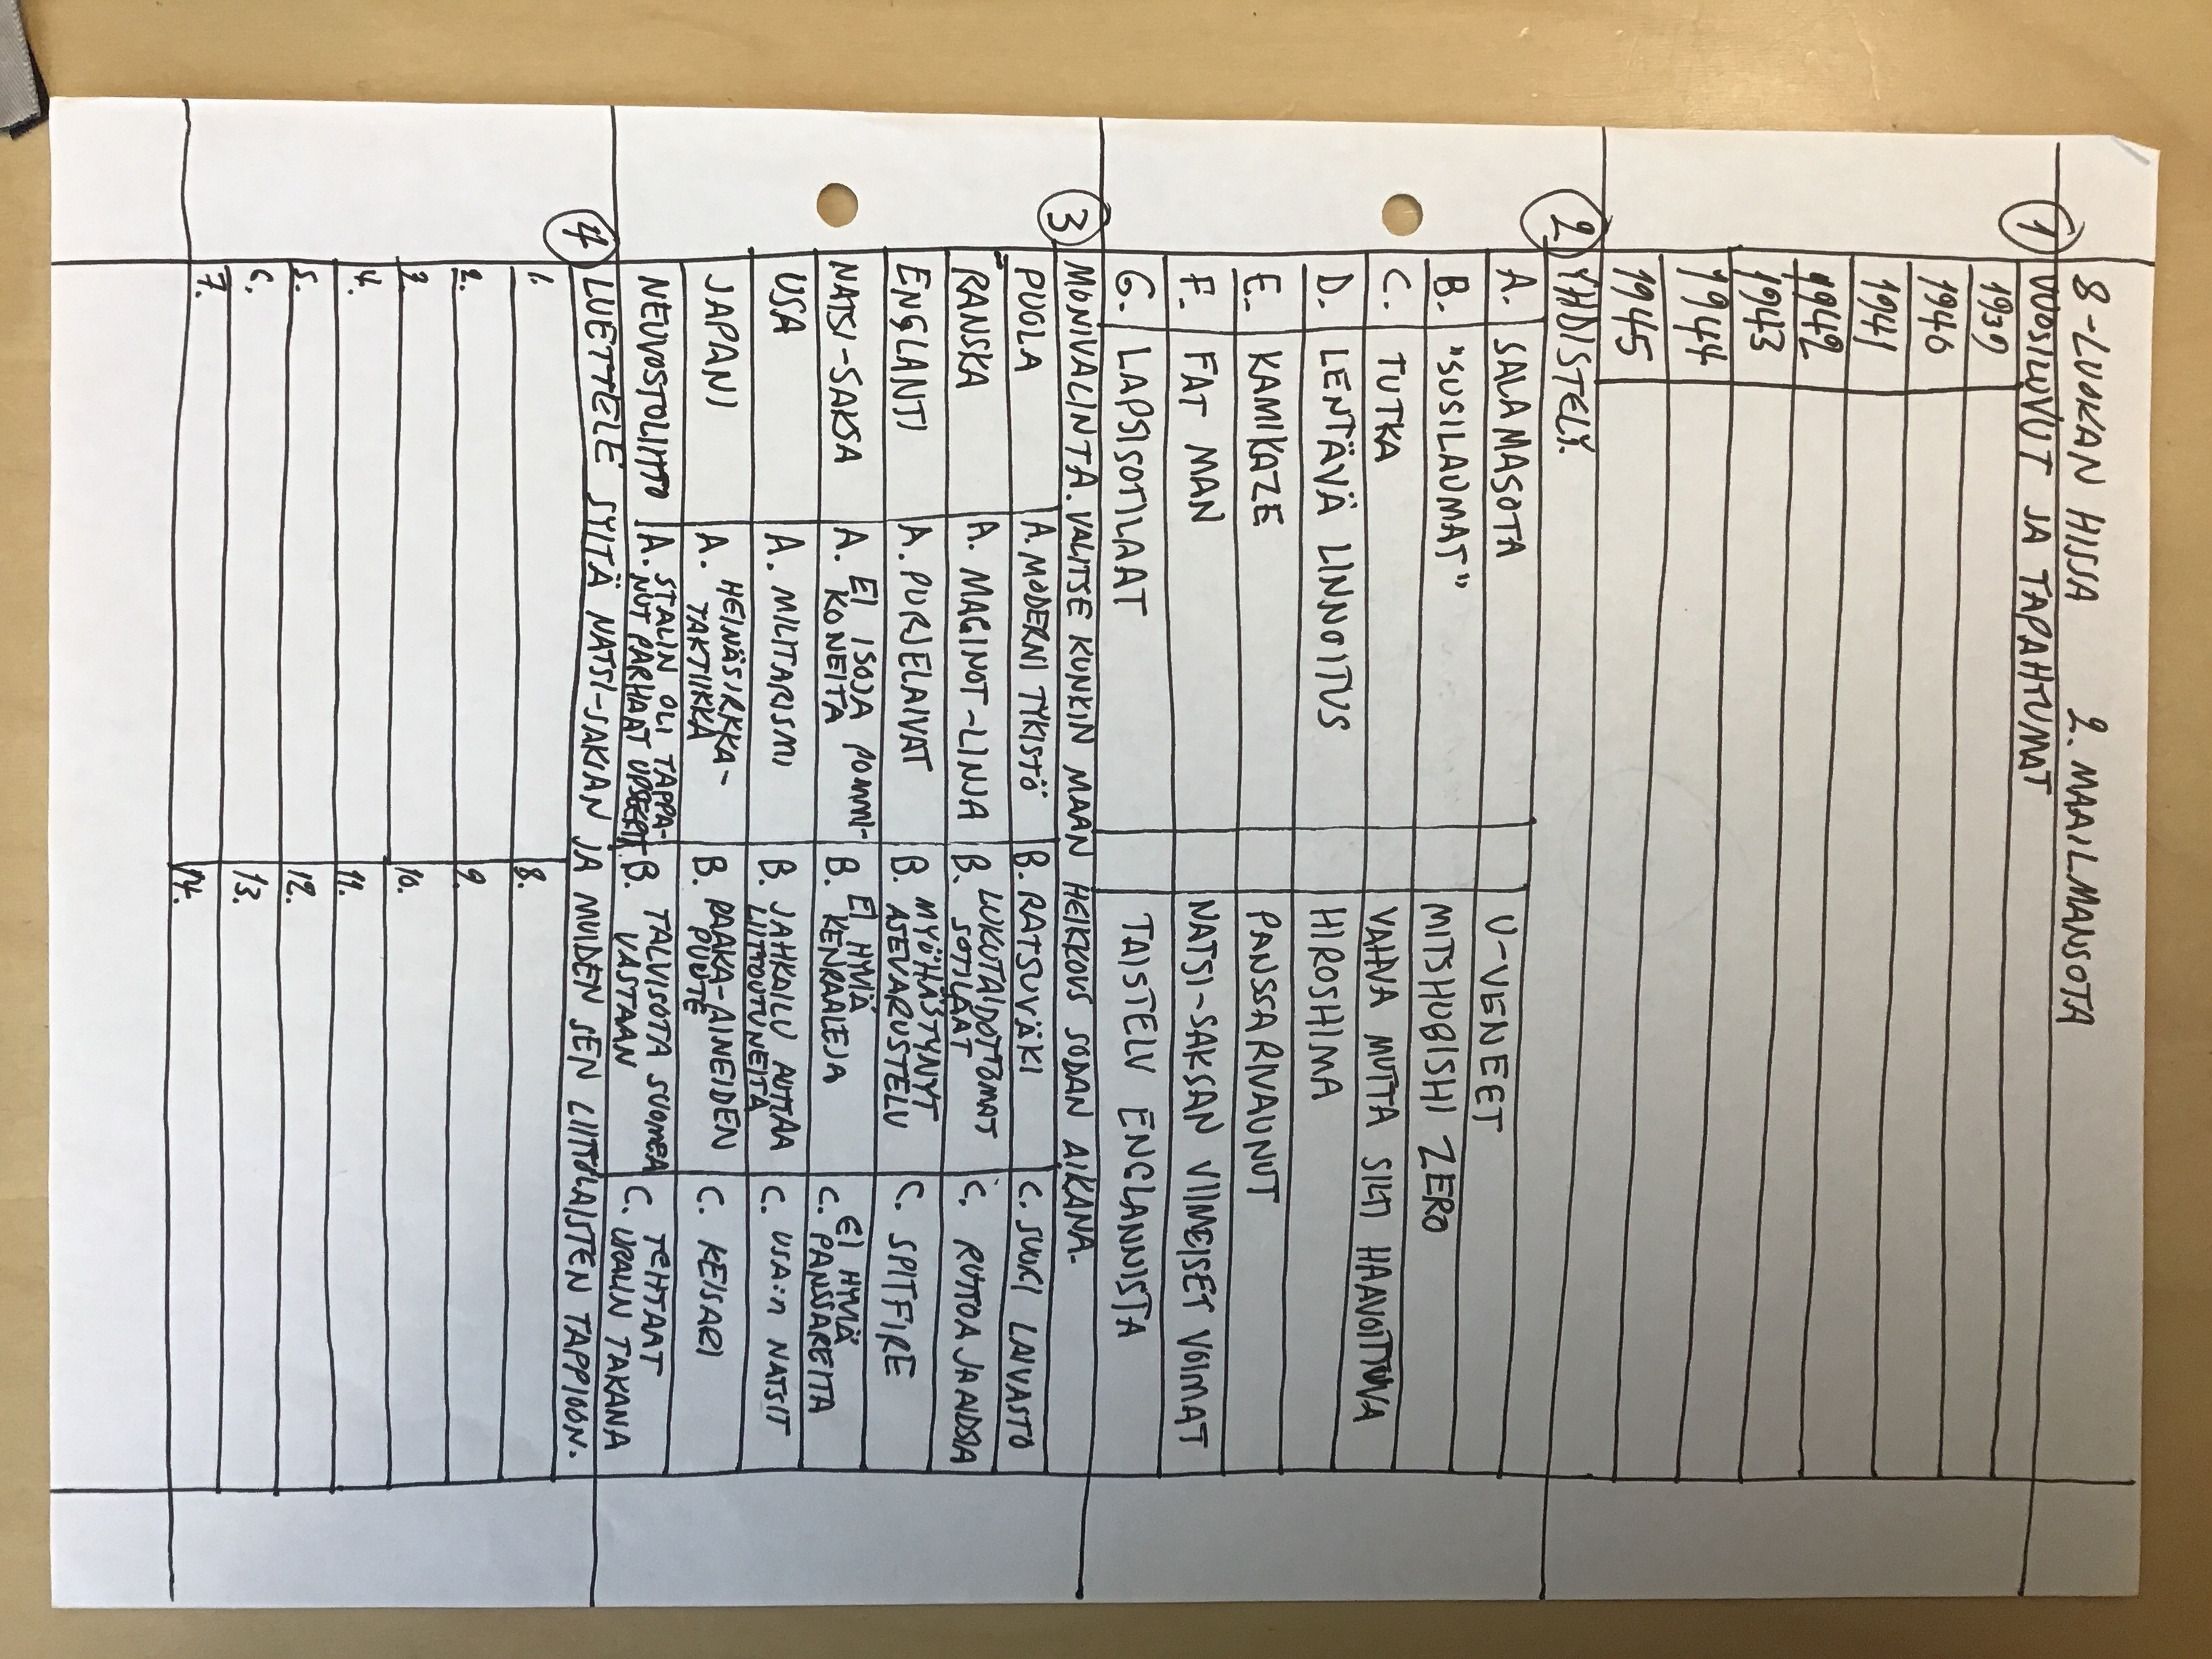 8-LUOKAN HISSA 2. MAAILMANSOTA
1 VUOSILUVUT JA TAPAHTUMAT
1939
1940
1941
1942
1943
1944
1945
2 YHDISTELY.
A. SALAMASOTA U-VENEET
B. "SUSILAUMAT" MITSHUBISHI ZERO
C. TUTKA VAHVA MUTTA SILTI HAAVOITTUVA
D. LENTÄVÄ LINNOITUS HIROSHIMA
E. KAMIKAZE PANSSARIVAUNUT
F. FAT MAN NATSI-SAKSAN VIIMEISET VOIMAT
G. LAPSISOTILAAT TAISTELU ENGLANNISTA
3 MONIVALINTA. VALITSE KUNKIN MAAN HEIKKOUS SODAN AIKANA.
PUOLA A. MODERNI TYKISTÖ B. RATSUVÄKI C. SUURI LAIVASTO
RANSKA A. MAGINOT-LINNA B. LUKUTAIDOTTOMAT SOTILAAT C. RUTTOA JA AIDSIA
ENGLANTI A. PURJELAIVAT B. MYÖHÄSTYNYT ASEVARUSTELU C. SPITFIRE
NATSI-SAKSA A. EI ISOJA POMMI-KONEITA B. EI HYVIÄ KENRAALEJA C. EI HYVIÄ PANSSAREITA
USA A. MILITARISMI B. JAHKAILU AUTTAA LIITTOUTUNEITA C. USA:n NATSIT
JAPANI A. HEINÄSIRKKA-TAKTIIKKA B. RAAKA-AINEIDEN PUUTE C. KEISARI
NEUVOSTOLIITTO A. STALIN OLI TAPPA-NUT PARHAAT UPSEERIT. B. TALVISOTA SUOMEA VASTAAN C. TEHTAAT URALIN TAKANA
4 LUETTELE SYITÄ NATSI-SAKSAN JA MUIDEN SEN LIITTOLAISTEN TAPPIOON.
1. 8.
2. 9.
3 10.
4. 11.
5. 12.
6. 13.
7. 14.